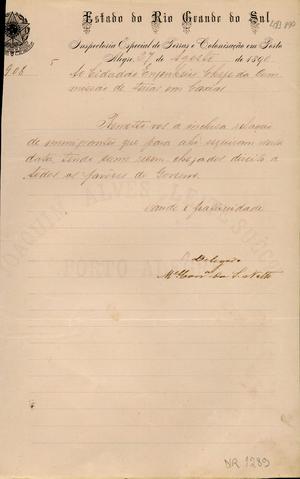 Estado do Rio Grande do Sul
Inspectoria Especial de Terras e Colonisação em Porto
Alegre, 27 de Agosto de 1890.
908
Ao Cidadão Engenheiro Chefe da Com-
missão de Terras em Caxias
Remetto vos a inclusa relação
de immigrantes que para ahi seguiram n'esta
data, tendo como recem chegados direito a
todos os favores do Governo.
Saude e fraternidade
JOAQUIM ALVES LEITE SUCC
PORTO ALEGRE
Delegado
da S. Netto
DR 1289